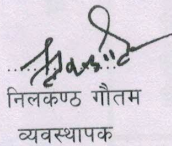 निलकण्ठ गौतम
व्यवस्थापक